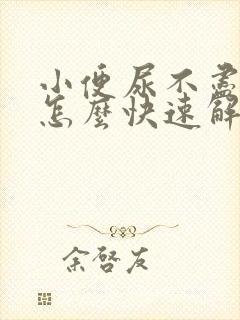 小便尿不盡
怎麼快速解
余啓友